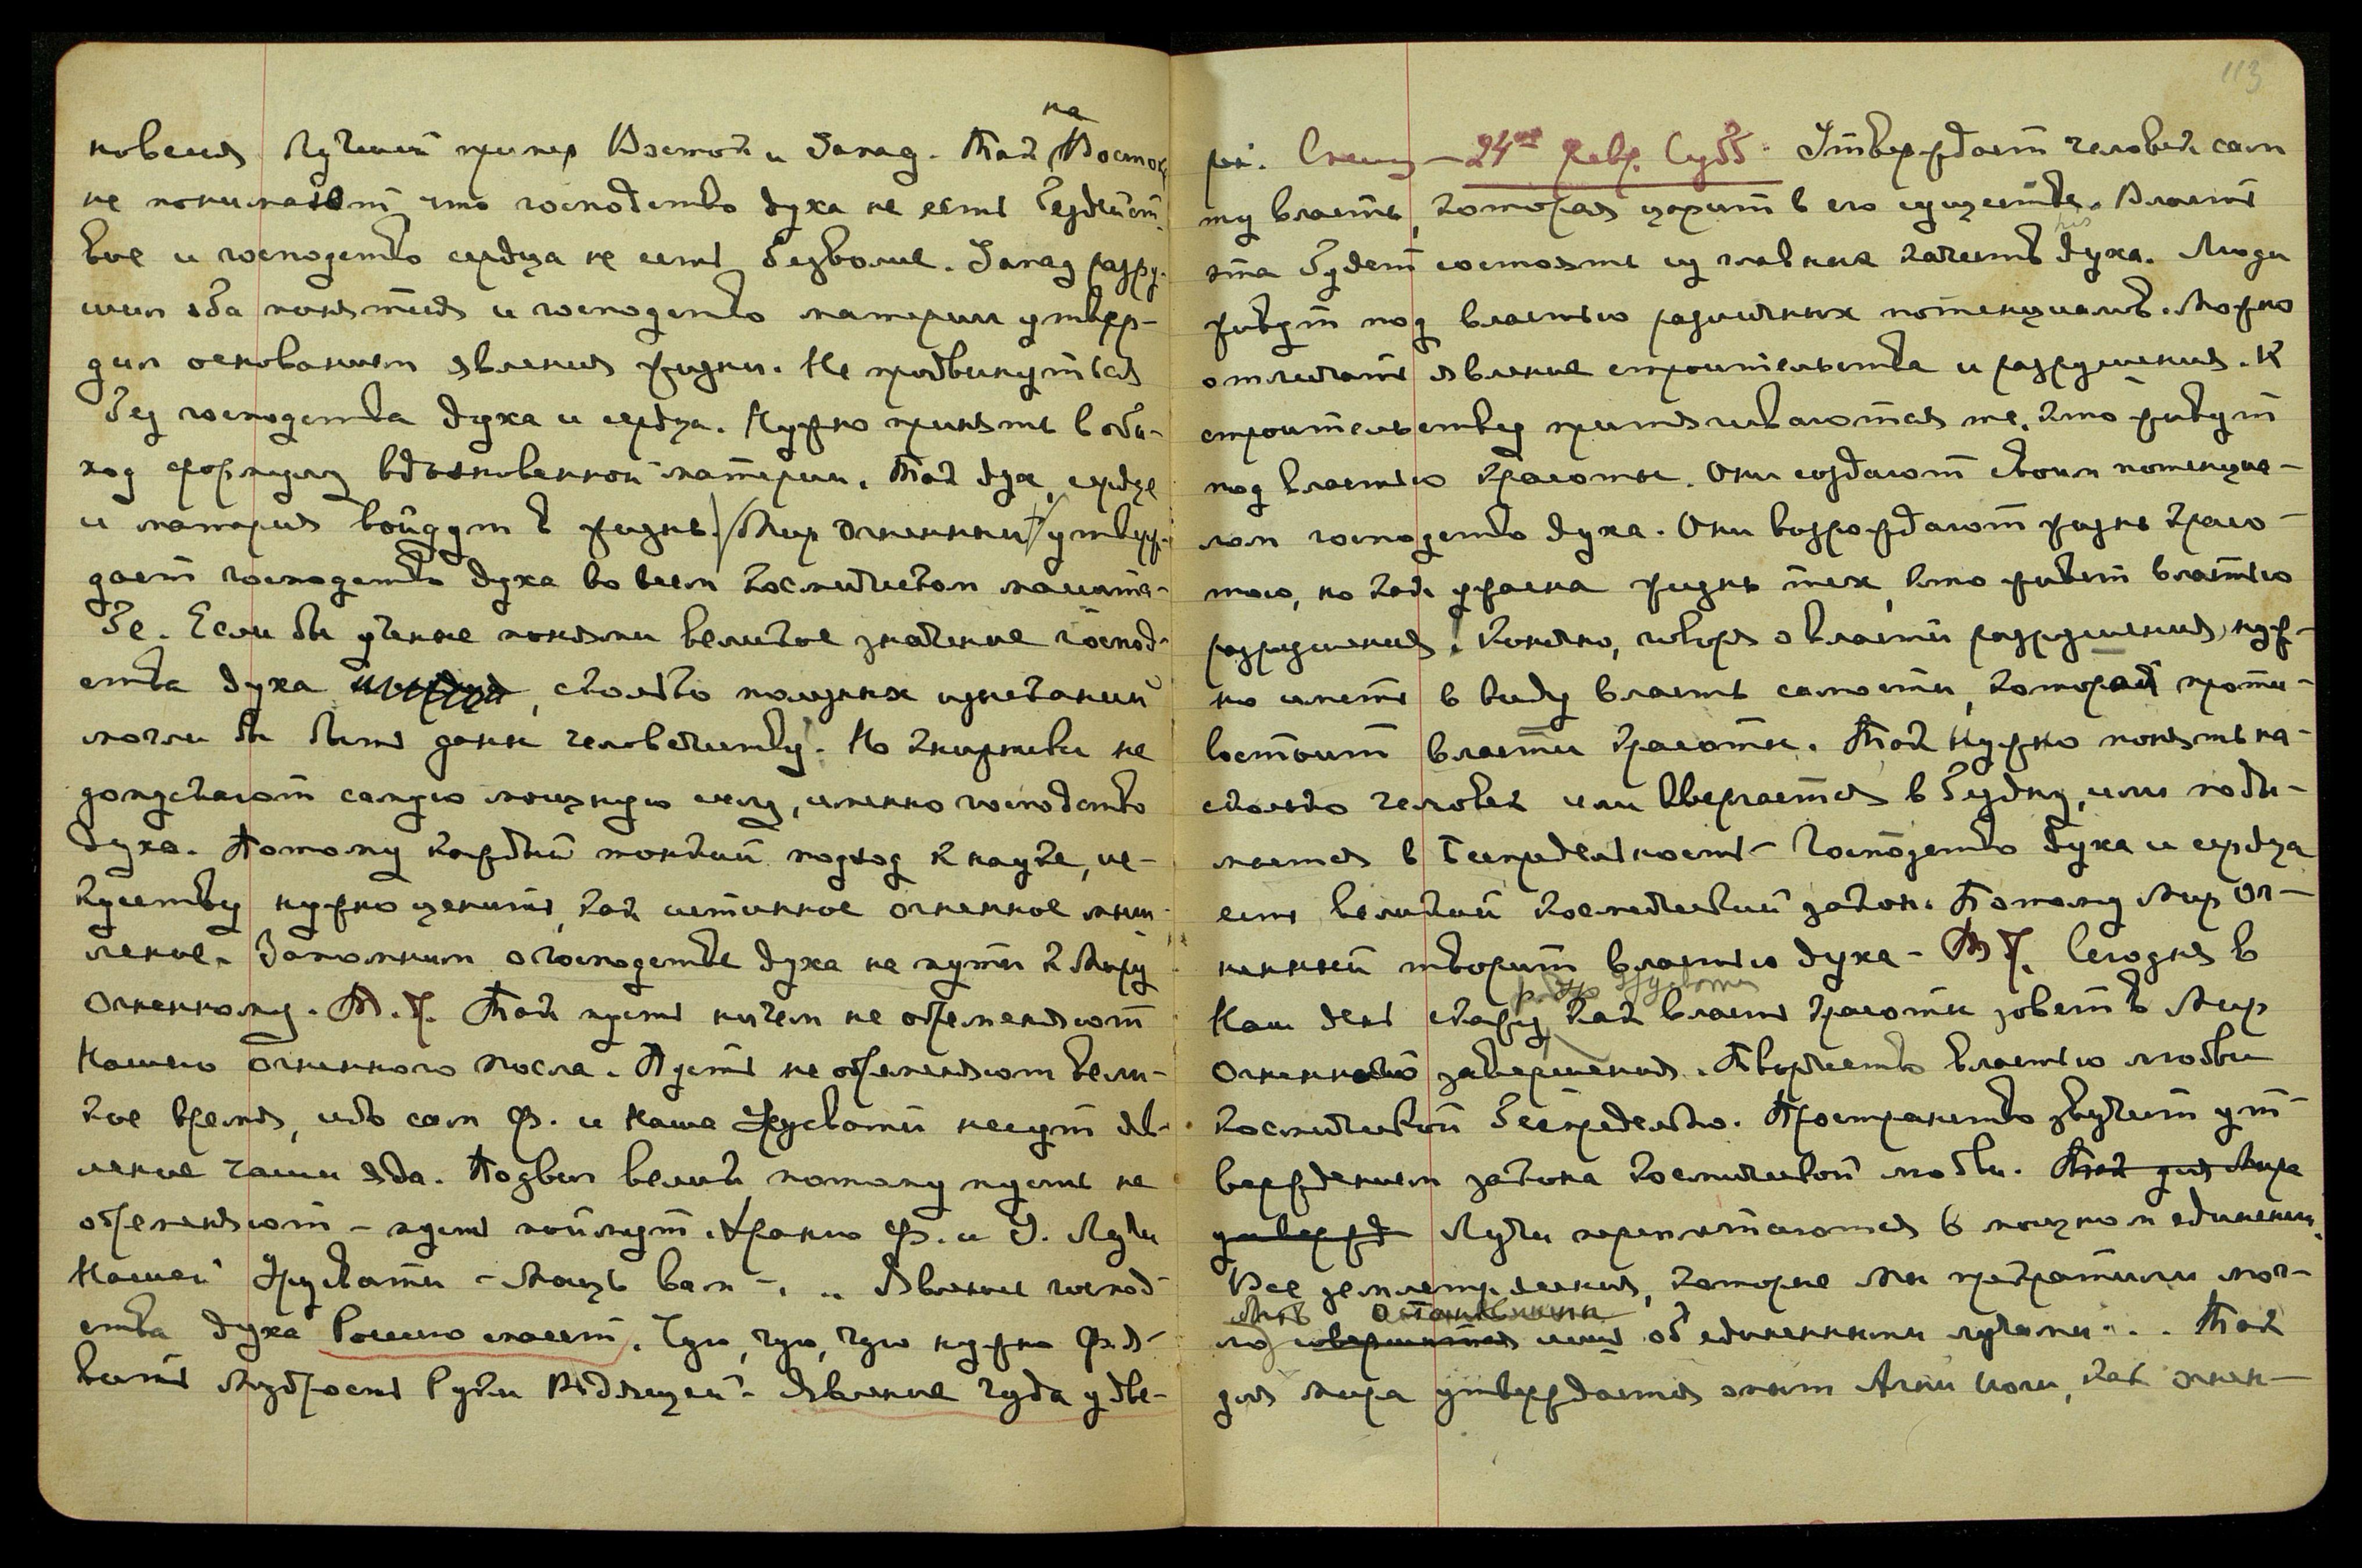 новения. Лучший пример Восток и Запад. Так на Востоке
не понимают что господство духа не есть бездейст-
вие и господство сердца не есть безволие. Запад разру-
шил оба понятия и господство материи утвер-
дил основанием явления жизни. Не продвинуться
без господства духа и сердца. Нужно принять в оби-
ход формулу вдохновенной материи. Так дух, сердце
и материя войдут в жизнь. Мир Огненный утверж-
дает господство духа во всем космическом масшта-
бе. Если бы ученые поняли великое значение господ-
ства духа, сколько полезных изысканий
могли бы быть даны человечеству. Но книжники не
допускают самую мощную силу, именно господство
духа. Потому каждый тонкий подход к науке, ис-
кусству нужно ценить, как истинное огненное мыш-
ление. Запомним о господстве духа на пути к Миру
Огненному. Так пусть ничем не обременяют
Нашего Огненного Посла. Пусть не обременяют вели-
кое время, ибо сам Ф. и Наша Урусвати несут яв-
ление чаши яда. Подвиг велик, потому пусть не
обременяют – пусть поймут. Храню Ф. и У. Лучи
Нашей Урусвати – Мощь вам –. .. Явление господ-
ства духа Россию спасет. Чую, чую, чую нужно Ф. я-
вить мудрость Руки Водящей – Явление чуда у две-
113
ри. Спешу – 24ое Февр. Субб. Утверждает человек сам
ту власть, которая царит в его существе. Власть
эта будет состоять из главных качеств духа. Люди
живут под властью различных потенциалов. Можно
отличать явление строительства и разрушения. К
строительству притягиваются те, кто живут
под властью Красоты. Они создают своим потенциа-
лом господство духа. Они возрождают жизнь красо-
тою, но как ужасна жизнь тех, кто живет властью
разрушения! Конечно, говоря о власти разрушения, нуж-
но иметь в виду власть самости, которая проти-
востоит власти Красоты. Так нужно понять на-
сколько человек или ввергается в бездну, или поды-
мается в Беспредельность – Господство духа и сердца
есть великий космический закон. Потому Мир Ог-
ненный творит властью духа – Сегодня в
Наш день скажу, как власть Красоты зовет в Мир
Огненного завершения. Творчество властью любви
космической беспредельно. Пространство звучит ут-
верждением закона космической любви. Так для Мира
утвержд Лучи переплетаются в мощном единении.
Все землетрясения, которые Мы прекратили мог-
лись остановлены
ло совершиться лишь объединенными лучами. . . Так
для Мира утверждается опыт Агни Йоги, как огнен-